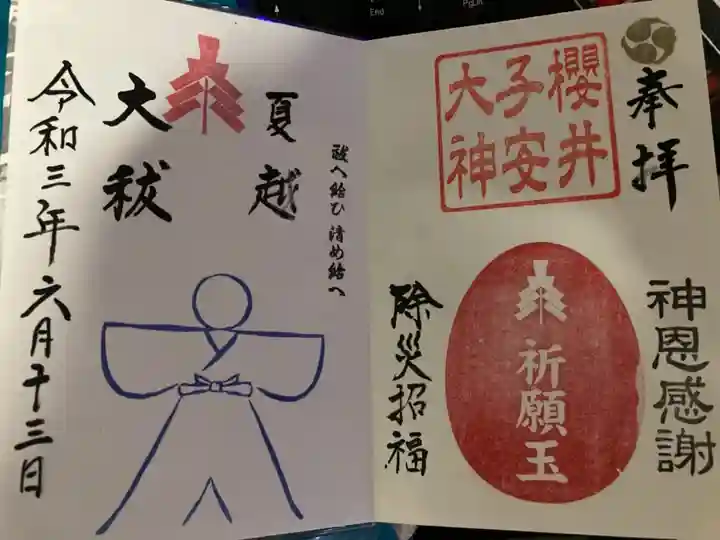 奉拝
櫻井
子安
大神
神恩感謝
祈願玉
除災招福
夏越
大祓
祓へ給ひ 清め給へ
令和三年六月十三日
End
PgDn